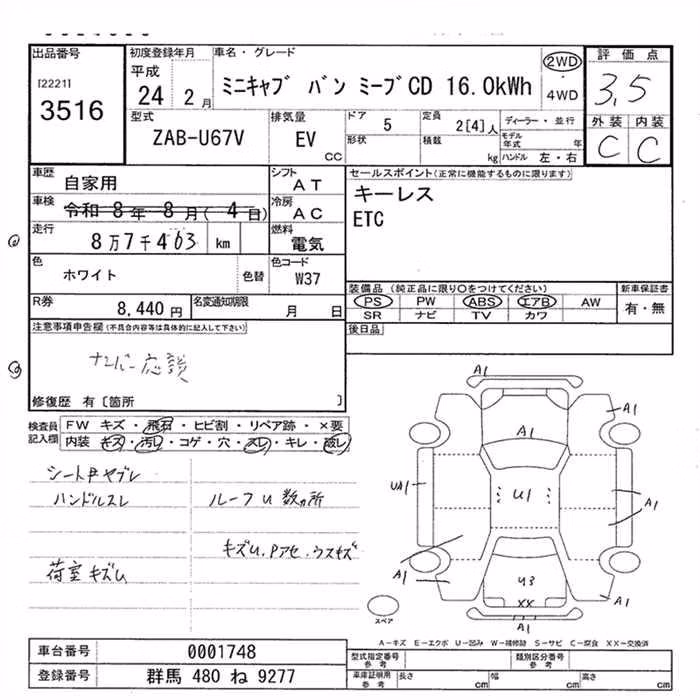 出品番号
[2221]
3516
初度登録年月
平成
24 2月
車名・グレード
ミニキャブ バン ミーブCD 16.0kWh
2WD
4WD
評価点
3.5
外装 内装
C C
型式
ZAB-U67V
排気量
EV
CC
ドア
5
定員
2[4]人
ディーラー・並行
形状
積載
kg
モデル年式
年
ハンドル 左・右
車歴
自家用
シフト
AT
車検
令和 8年 8月( 4日)
冷房
AC
走行
8万7千463 km
燃料
電気
色
ホワイト
色替
色コード
W37
R券
8,440円
名変通知期限
月 日
セールスポイント(正常に機能するものに限ります)
キーレス
ETC
装備品(純正品に限り○をつけてください)
PS PW ABS エアB AW
SR ナビ TV カワ
新車保証書
有・無
後日品
注意事項申告欄(不具合内容等は具体的に記入して下さい)
ナンバー応談
修復歴 有[箇所 ]
検査員
記入欄
FW キズ・飛石・ヒビ割・リペア跡・×要
内装 キズ・汚レ・コゲ・穴・スレ・キレ・破レ
シートPヤブレ
ハンドルスレ
ルーフU数ヵ所
キズU.Pアセ.ウスキズ
荷室キズU
A1
A1
A1
UA1
U1
A1
A1
U3
XX
A1
A1
スペア
A-キズ E-エクボ U-凹み W-補修跡 S-サビ C-腐食 XX-交換済
車台番号
0001748
登録番号
群馬 480 ね 9277
型式指定番号
参考
類別区分番号
参考
車庫証明用
参考
長さ
cm
幅
cm
高さ
cm